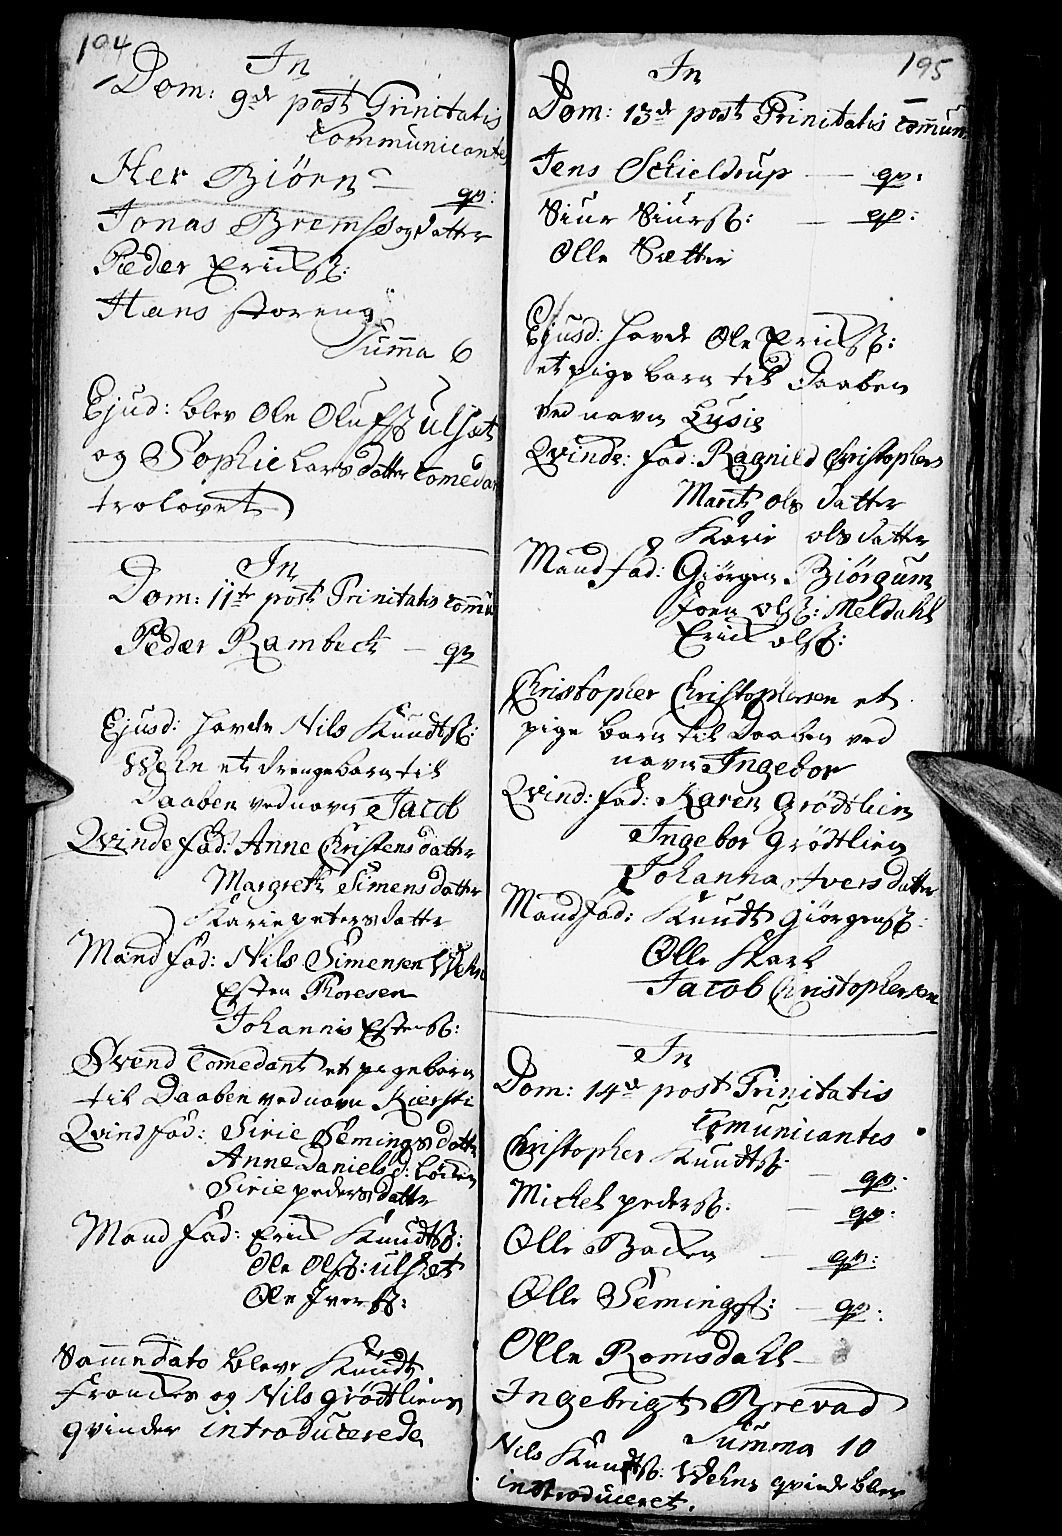 194
In
Dom: 9de post Trinitatis
Communicantes
Her Biørn — qv:
Jonas Brems og datter
Peder Erichs:
Hans storeng
Summa 6
Ejud: blev Ole Olufs ulset
og Sophie Lars datter Comedan
trolovet
In
Dom: 11te post Trinitatis comu
Peder Rambech — qv
Ejusd: hafde Nils Knudtss:
Wehn et drengebarn til
Daaben ved navn Jacob
Qvinde fad: Anne Christensdatter
Margreth Simensdatter
Karie petersdatter
Mand fad: Nils Simensen Wehn
Esten Thoresen
Johannis Estenss:
Svend Comedant et pigebarn
til Daaben ved navn Kiersti
Qvind fad: Sirie Semingsdatter
Anne Daniels d:
Sirie pedersdatter
Mand fad: Erich Knudtss:
Ole Olss: ulset
Ole Iverss:
Sammedato bleve Knudt
og Nils Grødtliens
qvinder introducerede
195
In
Dom: 13de post Trinitatis Commun
Jens Schieldrup — qv:
Siur Siurss: — qv:
Olle Sætter
Ejusd: hafde Ole Erichss:
et pige barn til Daaben
ved navn Lusie
Qvinde: fad: Ragnild Christophers
Marit ols datter
Karie ols datter
Mand fad: Giörgen Biörgum
Joen olss: Meldahl
Erich olss:
Christopher Christophersen et
pige barn til Daaben ved
navn Ingebor
Qvind: fad: Karen Grødtlien
Ingebor Grødtlien
Johanna Iversdatter
Mand fad: Knudt Giörgenss:
Olle Skarl
Jacob Christophersen
In
Dom: 14de post Trinitatis
Comunicantes
Christopher Knudtss — qv:
Michel pederss: — qv:
Olle Backen — qv:
Olle Semingss: — qv:
Olle Romsdahl —
Ingebrigt Brevad
Summa 10
Nils Knudtss: Wehns qvinde blev
introduceret.